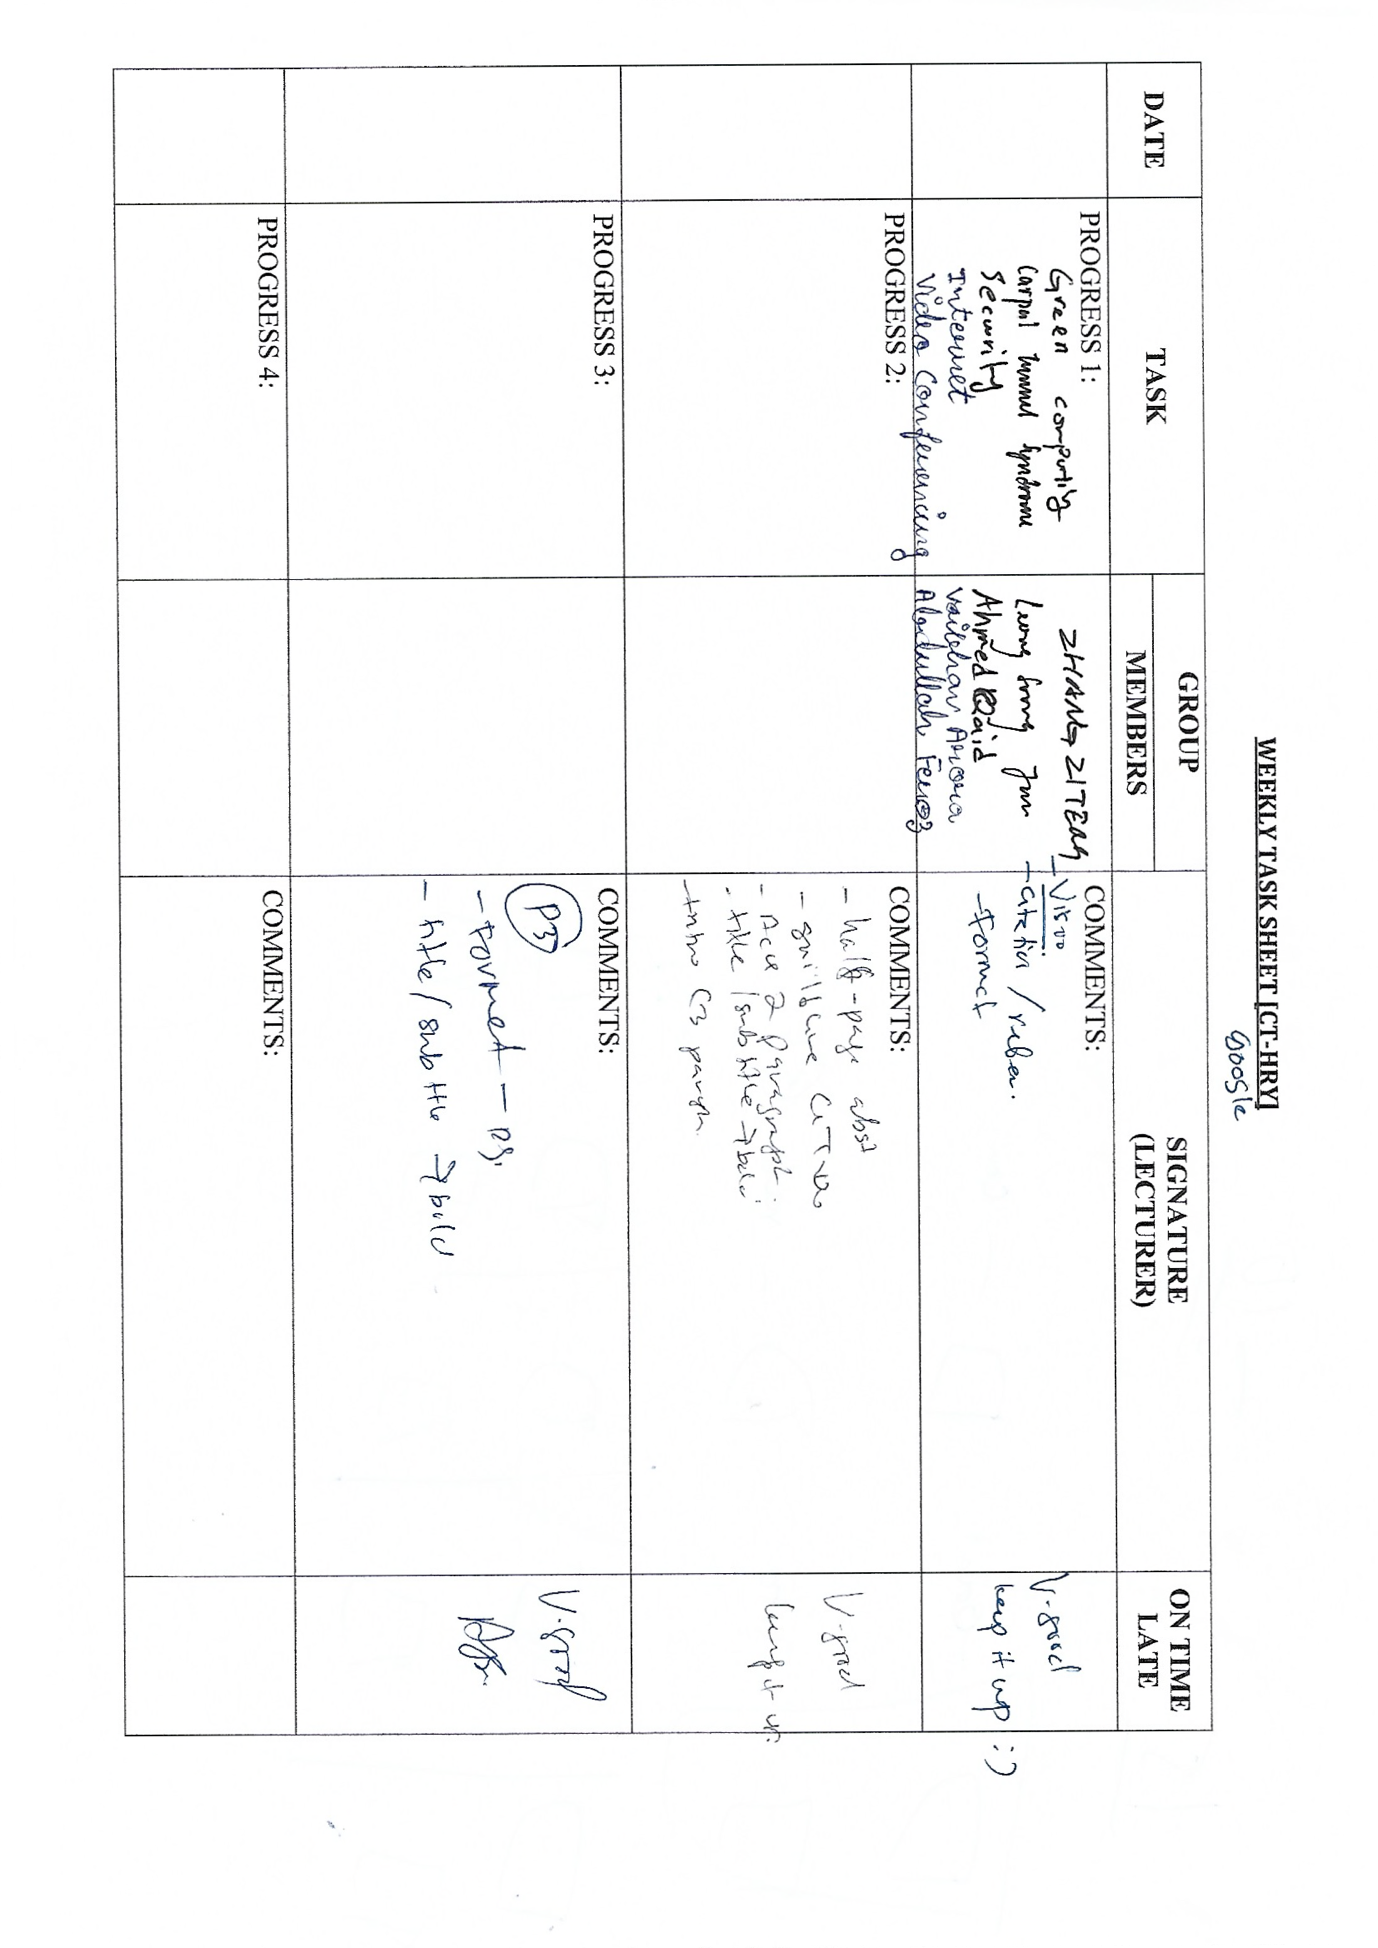 WEEKLY TASK SHEET [CT-HRY]
Google
DATE
TASK
GROUP
MEMBERS
SIGNATURE
(LECTURER)
ON TIME
LATE
PROGRESS 1:
Green computing
Carpal tunnel syndrome
Security
Internet
Video Conferencing
ZHANG ZITENG
Ahmed
Vaibhav Arora
Abdullah Feroz
COMMENTS:
- Format
V. good
keep it up :)
PROGRESS 2:
COMMENTS:
- half-page abst
- Acc 2 Paragraph
- title / subtitle → bold
- Intro (3 paragr.
V. good
keep it up
PROGRESS 3:
COMMENTS:
P3
- Format - pg.
- title / subtitle → bold
V. good
PROGRESS 4:
COMMENTS: